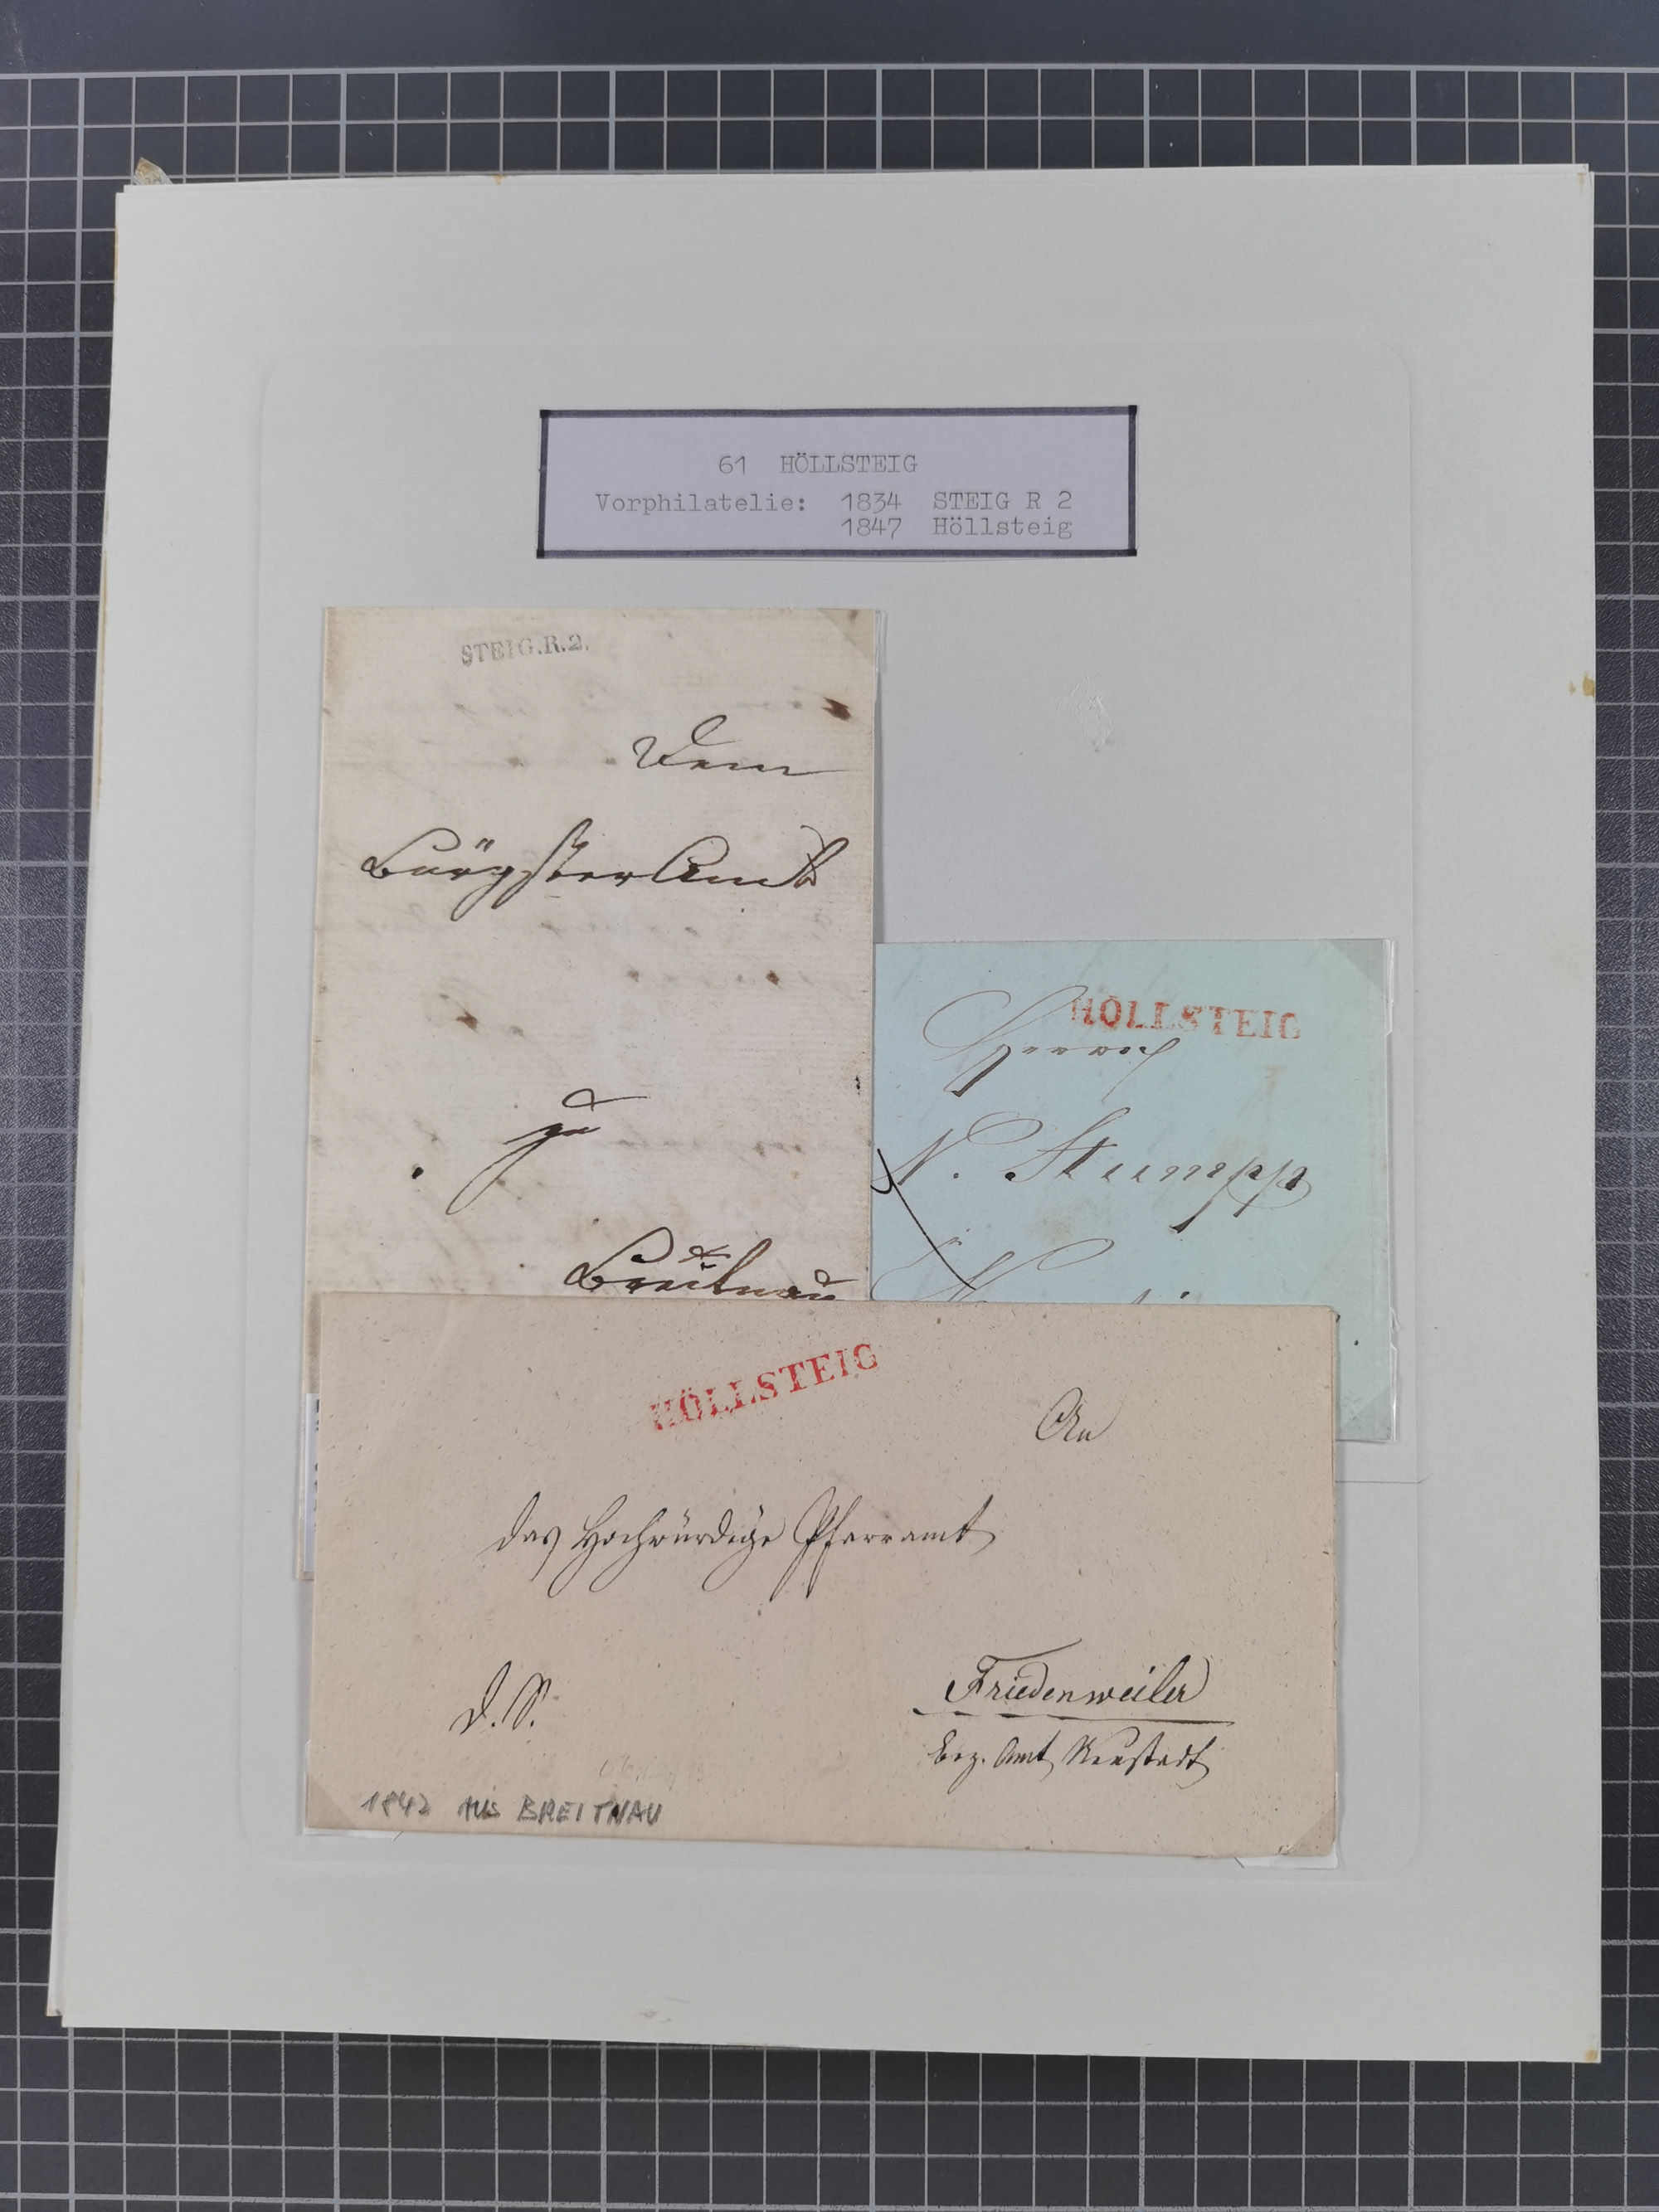 61 HÖLLSTEIG
Vorphilatelie: 1834 STEIG R 2
1847 Höllsteig
STEIG.R.2.
Dem
zu
Breitnau
HÖLLSTEIG
Herrn
N. Stumpp
HÖLLSTEIG
An
das Hochwürdige Pfarramt
D. S.
Friedenweiler
Bez. Amt Neustadt
1842 AUS BREITNAU